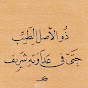 ذو الأصل الطيب
حتى في عداوته شريف